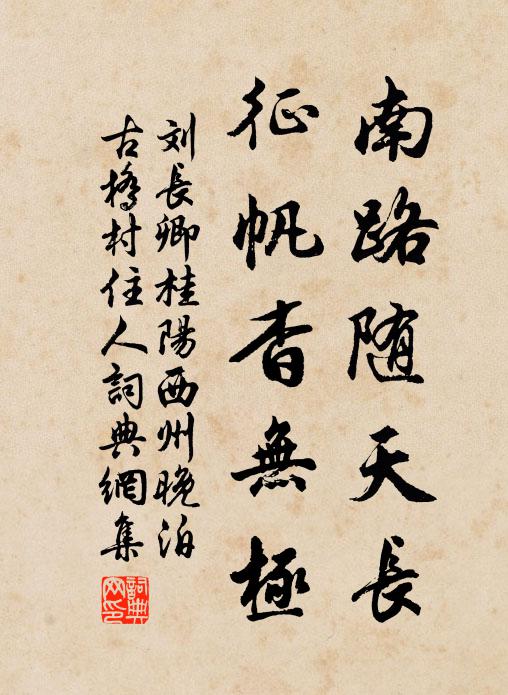 南路随天長
征帆杳無極
刘長卿桂陽西州晚泊
古橋村住人詞典網集
詞典网印